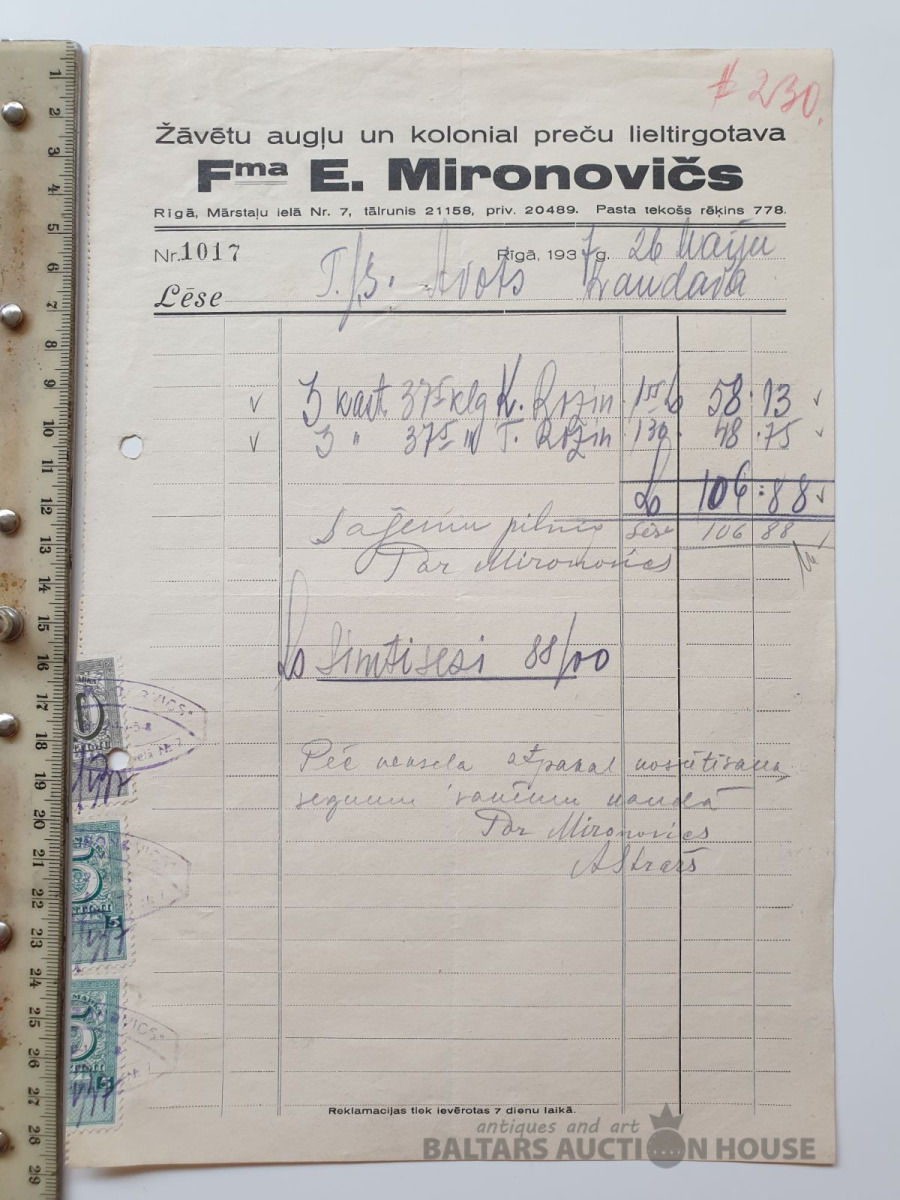 # 230.
Žāvētu augļu un kolonial preču lieltirgotava
Fma E. Mironovičs
Rīgā, Mārstaļu ielā Nr. 7, tālrunis 21158, priv. 20489. Pasta tekošs rēķins 778.
Nr. 1017 Rīgā, 1937 g. 26 Maijā
Lēse T./S. Avots Kandavā
3 kast 37⁵ klg K. Rozin 1⁵⁵ Ls 58.13
3 " 37⁵ " T. Rozin 1³⁰ 48.75
Ls 106:88
Saņēmu pilnīg Lēse 106 88
Par Mironovics
Ls Simtisesi 88/00
Pēc veksela atpakaļ nosūtīšanas
segumu saņēmu naudā
Par Mironovics
AStraŗs
Reklamacijas tiek ievērotas 7 dienu laikā.
antiques and art
BALTARS AUCTION HOUSE